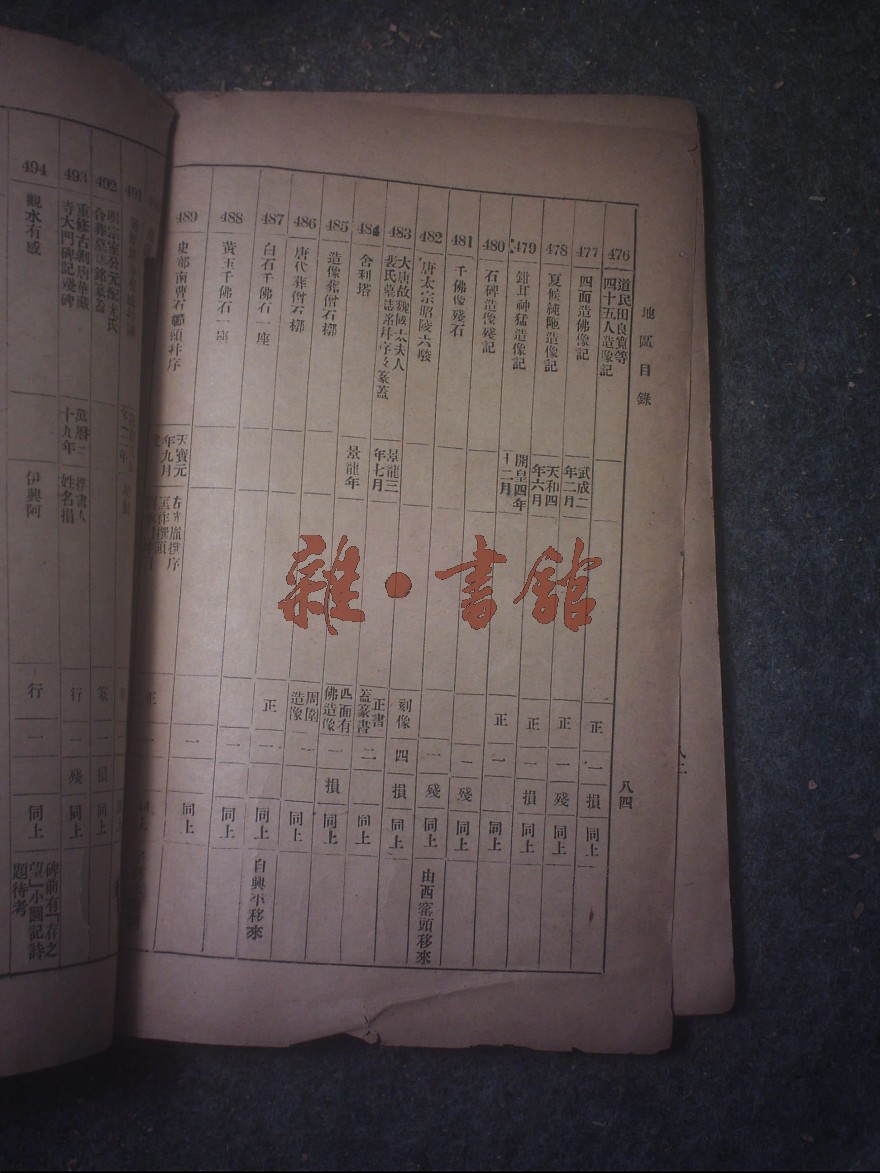 地區目錄
八四
476
道民田良寬等
四十五人造像記
正
一
損
同上
477
四面造佛像記
武成二
年二月
正
一
殘
同上
478
夏侯純陁造像記
天和四
年六月
正
一
損
同上
479
鉗耳神猛造像記
開皇四年
十二月
正
一
同上
480
石碑造像殘記
一
殘
同上
481
千佛像殘石
一
殘
同上
由西窰頭移來
482
唐太宗昭陵六駿
刻像
四
損
同上
483
大唐故魏國太夫人
裴氏墓誌銘并序
篆蓋
景龍三
年七月
正書
蓋篆書
二
同上
484
舍利塔
景龍年
四面有
佛造像
一
損
同上
485
造像葬僧石槨
周圍
造像
一
同上
486
唐代葬僧石槨
正
一
同上
487
白石千佛石一座
一
同上
488
黃玉千佛石一座
一
同上
489
天寶元
年九月
正
492
篆
損
同上
493
重修古剎唐華嚴
寺大門碑記殘碑
萬曆二
十九年
姓名損
行
一
殘
同上
494
觀水有感
伊興阿
行
一
同上
碑前有「存之
望」小園記詩
題待考
雜·書館